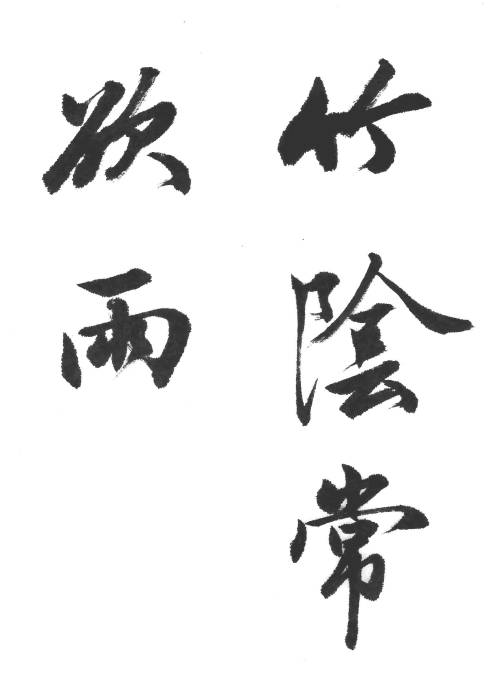 竹陰常
欲雨